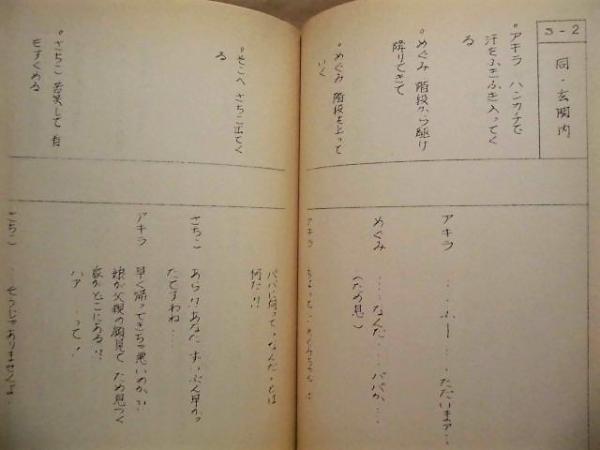 S-2
同・玄関内
○アキラ ハンカチで
汗をふきふき入ってく
る
○めぐみ 階段から駆け
降りてきて
○めぐみ 階段を上って
いく
アキラ …ふー……ただいまァ…
めぐみ …なんだ…パパか…
(ため息)
アキラ
パパに向って、なんだ、とは
何だ!!
○そこへ さちこ出てく
る
○さちこ 苦笑して 肩
をすくめる
さちこ あら!!あなた ずいぶん早かっ
たですわね…
アキラ 早く帰ってきちゃ悪いのか!!
娘が父親の顔見て ため息つく
家がどこにある!!
ハァ…って!
さちこ